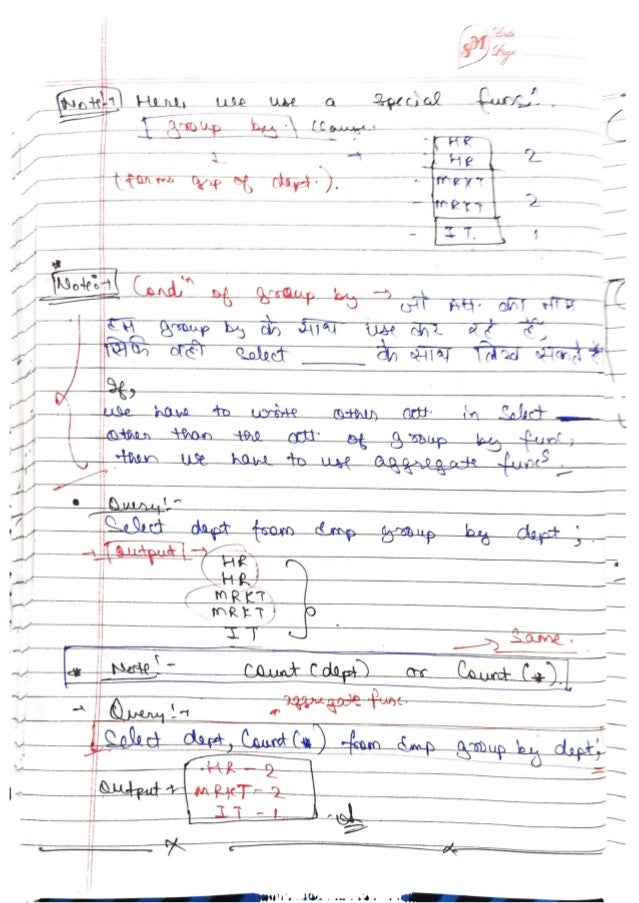 SM Date
Page
Note:→ Here, we use a special func.
[group by] Clause.
(forms grp of dept.).
HR
HR 2
MRKT
MRKT 2
IT. 1
* Note:→ Condⁿ of group by → जो Att. का नाम
हम group by के साथ use कर रहे हैं,
सिर्फ वही Select ____ के साथ लिख सकते हैं
If,
we have to write other att. in Select
other than the att. of group by func,
then we have to use aggregate funcs.
• Query:-
Select dept from Emp group by dept ;
→ [Output] →
HR
HR
MRKT
MRKT
IT
→ Same.
* Note:- Count (dept) or Count (*).
aggregate func.
→ Query:→
Select dept, Count(*) from Emp group by dept;
Output →
HR - 2
MRKT - 2
IT - 1